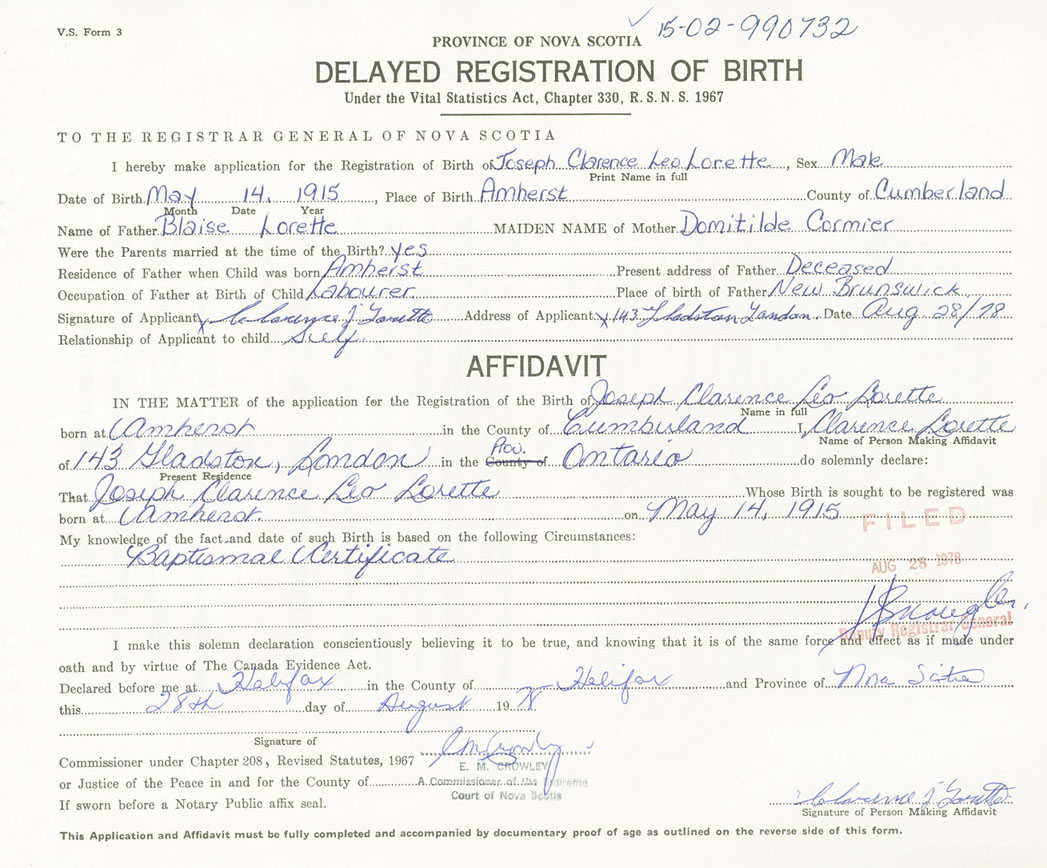 V.S. Form 3
15-02-990732
PROVINCE OF NOVA SCOTIA
DELAYED REGISTRATION OF BIRTH
Under the Vital Statistics Act, Chapter 330, R. S. N. S. 1967
TO THE REGISTRAR GENERAL OF NOVA SCOTIA
I hereby make application for the Registration of Birth of Joseph Clarence Leo Lorette, Sex Male
Print Name in full
Date of Birth May 14, 1915, Place of Birth Amherst County of Cumberland
Month Date Year
Name of Father Blaise Lorette MAIDEN NAME of Mother Domitilde Cormier
Were the Parents married at the time of the Birth? yes
Residence of Father when Child was born Amherst Present address of Father Deceased
Occupation of Father at Birth of Child Labourer Place of birth of Father New Brunswick
Signature of Applicant x Clarence J Lorette Address of Applicant x 143 Gladston London Date Aug 28/78
Relationship of Applicant to child Self
AFFIDAVIT
IN THE MATTER of the application for the Registration of the Birth of Joseph Clarence Leo Lorette
Name in full
born at Amherst in the County of Cumberland I, Clarence Lorette
Name of Person Making Affidavit
of 143 Gladston, London in the County of Prov. Ontario do solemnly declare:
Present Residence
That Joseph Clarence Leo Lorette Whose Birth is sought to be registered was
born at Amherst. on May 14, 1915
FILED
My knowledge of the fact and date of such Birth is based on the following Circumstances:
Baptismal Certificate
AUG 28 1978
Deputy Registrar General
I make this solemn declaration conscientiously believing it to be true, and knowing that it is of the same force and effect as if made under
oath and by virtue of The Canada Evidence Act.
Declared before me at Halifax in the County of Halifax and Province of Nova Scotia
this 28th day of August 1978
Signature of
Commissioner under Chapter 208, Revised Statutes, 1967
E. M. CROWLEY
or Justice of the Peace in and for the County of A Commissioner of the Supreme
Court of Nova Scotia
If sworn before a Notary Public affix seal.
Clarence J Lorette
Signature of Person Making Affidavit
This Application and Affidavit must be fully completed and accompanied by documentary proof of age as outlined on the reverse side of this form.